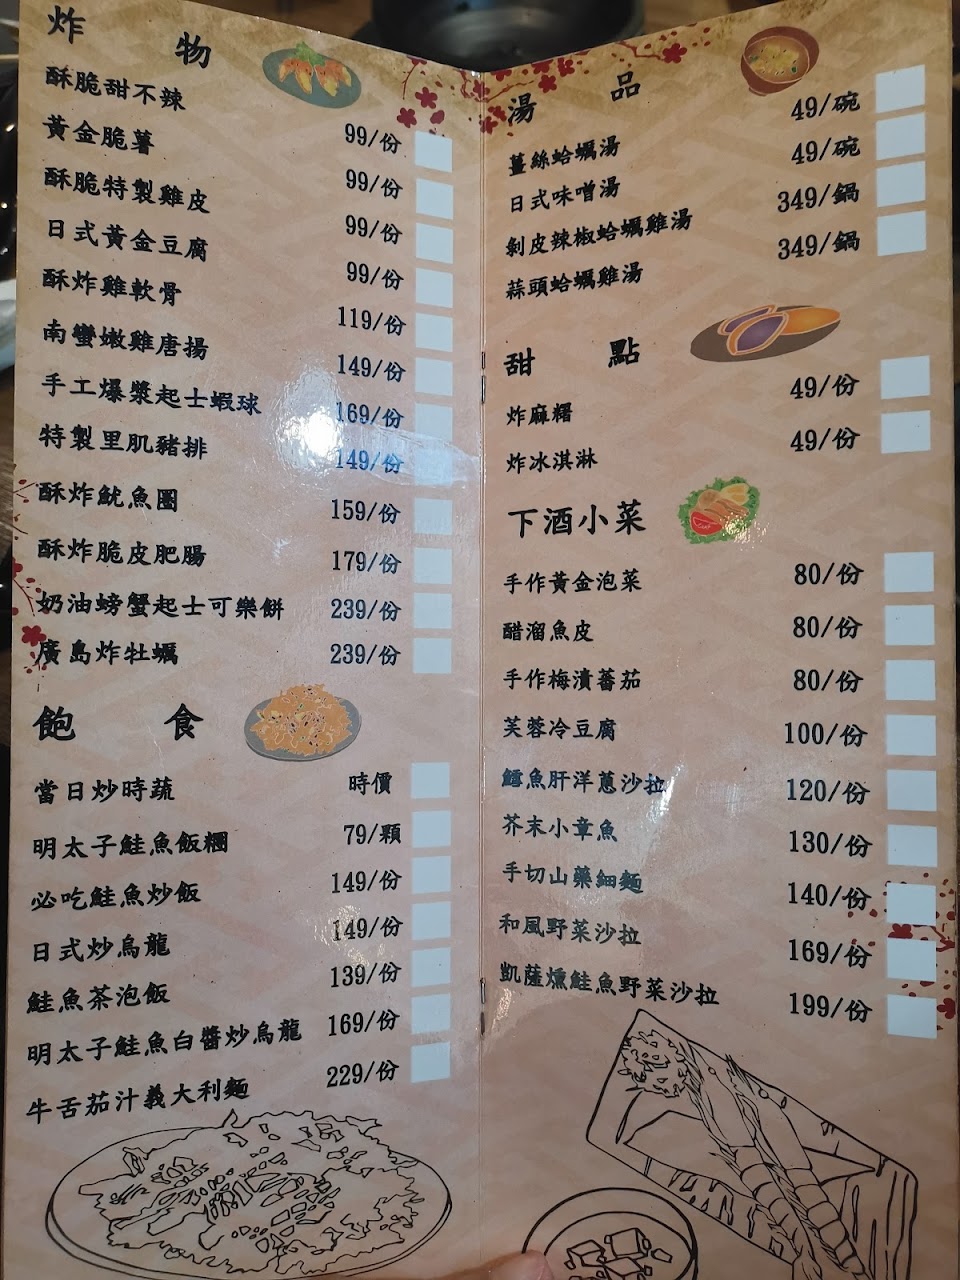 炸物
酥脆甜不辣 99/份
黃金脆薯 99/份
酥脆特製雞皮 99/份
日式黃金豆腐 99/份
酥炸雞軟骨 119/份
南蠻嫩雞唐揚 149/份
手工爆漿起士蝦球 169/份
特製里肌豬排 149/份
酥炸魷魚圈 159/份
酥炸脆皮肥腸 179/份
奶油螃蟹起士可樂餅 239/份
廣島炸牡蠣 239/份
飽食
當日炒時蔬 時價
明太子鮭魚飯糰 79/顆
必吃鮭魚炒飯 149/份
日式炒烏龍 149/份
鮭魚茶泡飯 139/份
明太子鮭魚白醬炒烏龍 169/份
牛舌茄汁義大利麵 229/份
湯品
薑絲蛤蠣湯 49/碗
日式味噌湯 49/碗
剝皮辣椒蛤蠣雞湯 349/鍋
蒜頭蛤蠣雞湯 349/鍋
甜點
炸麻糬 49/份
炸冰淇淋 49/份
下酒小菜
手作黃金泡菜 80/份
醋溜魚皮 80/份
手作梅漬蕃茄 80/份
芙蓉冷豆腐 100/份
鱈魚肝洋蔥沙拉 120/份
芥末小章魚 130/份
手切山藥細麵 140/份
和風野菜沙拉 169/份
凱薩燻鮭魚野菜沙拉 199/份